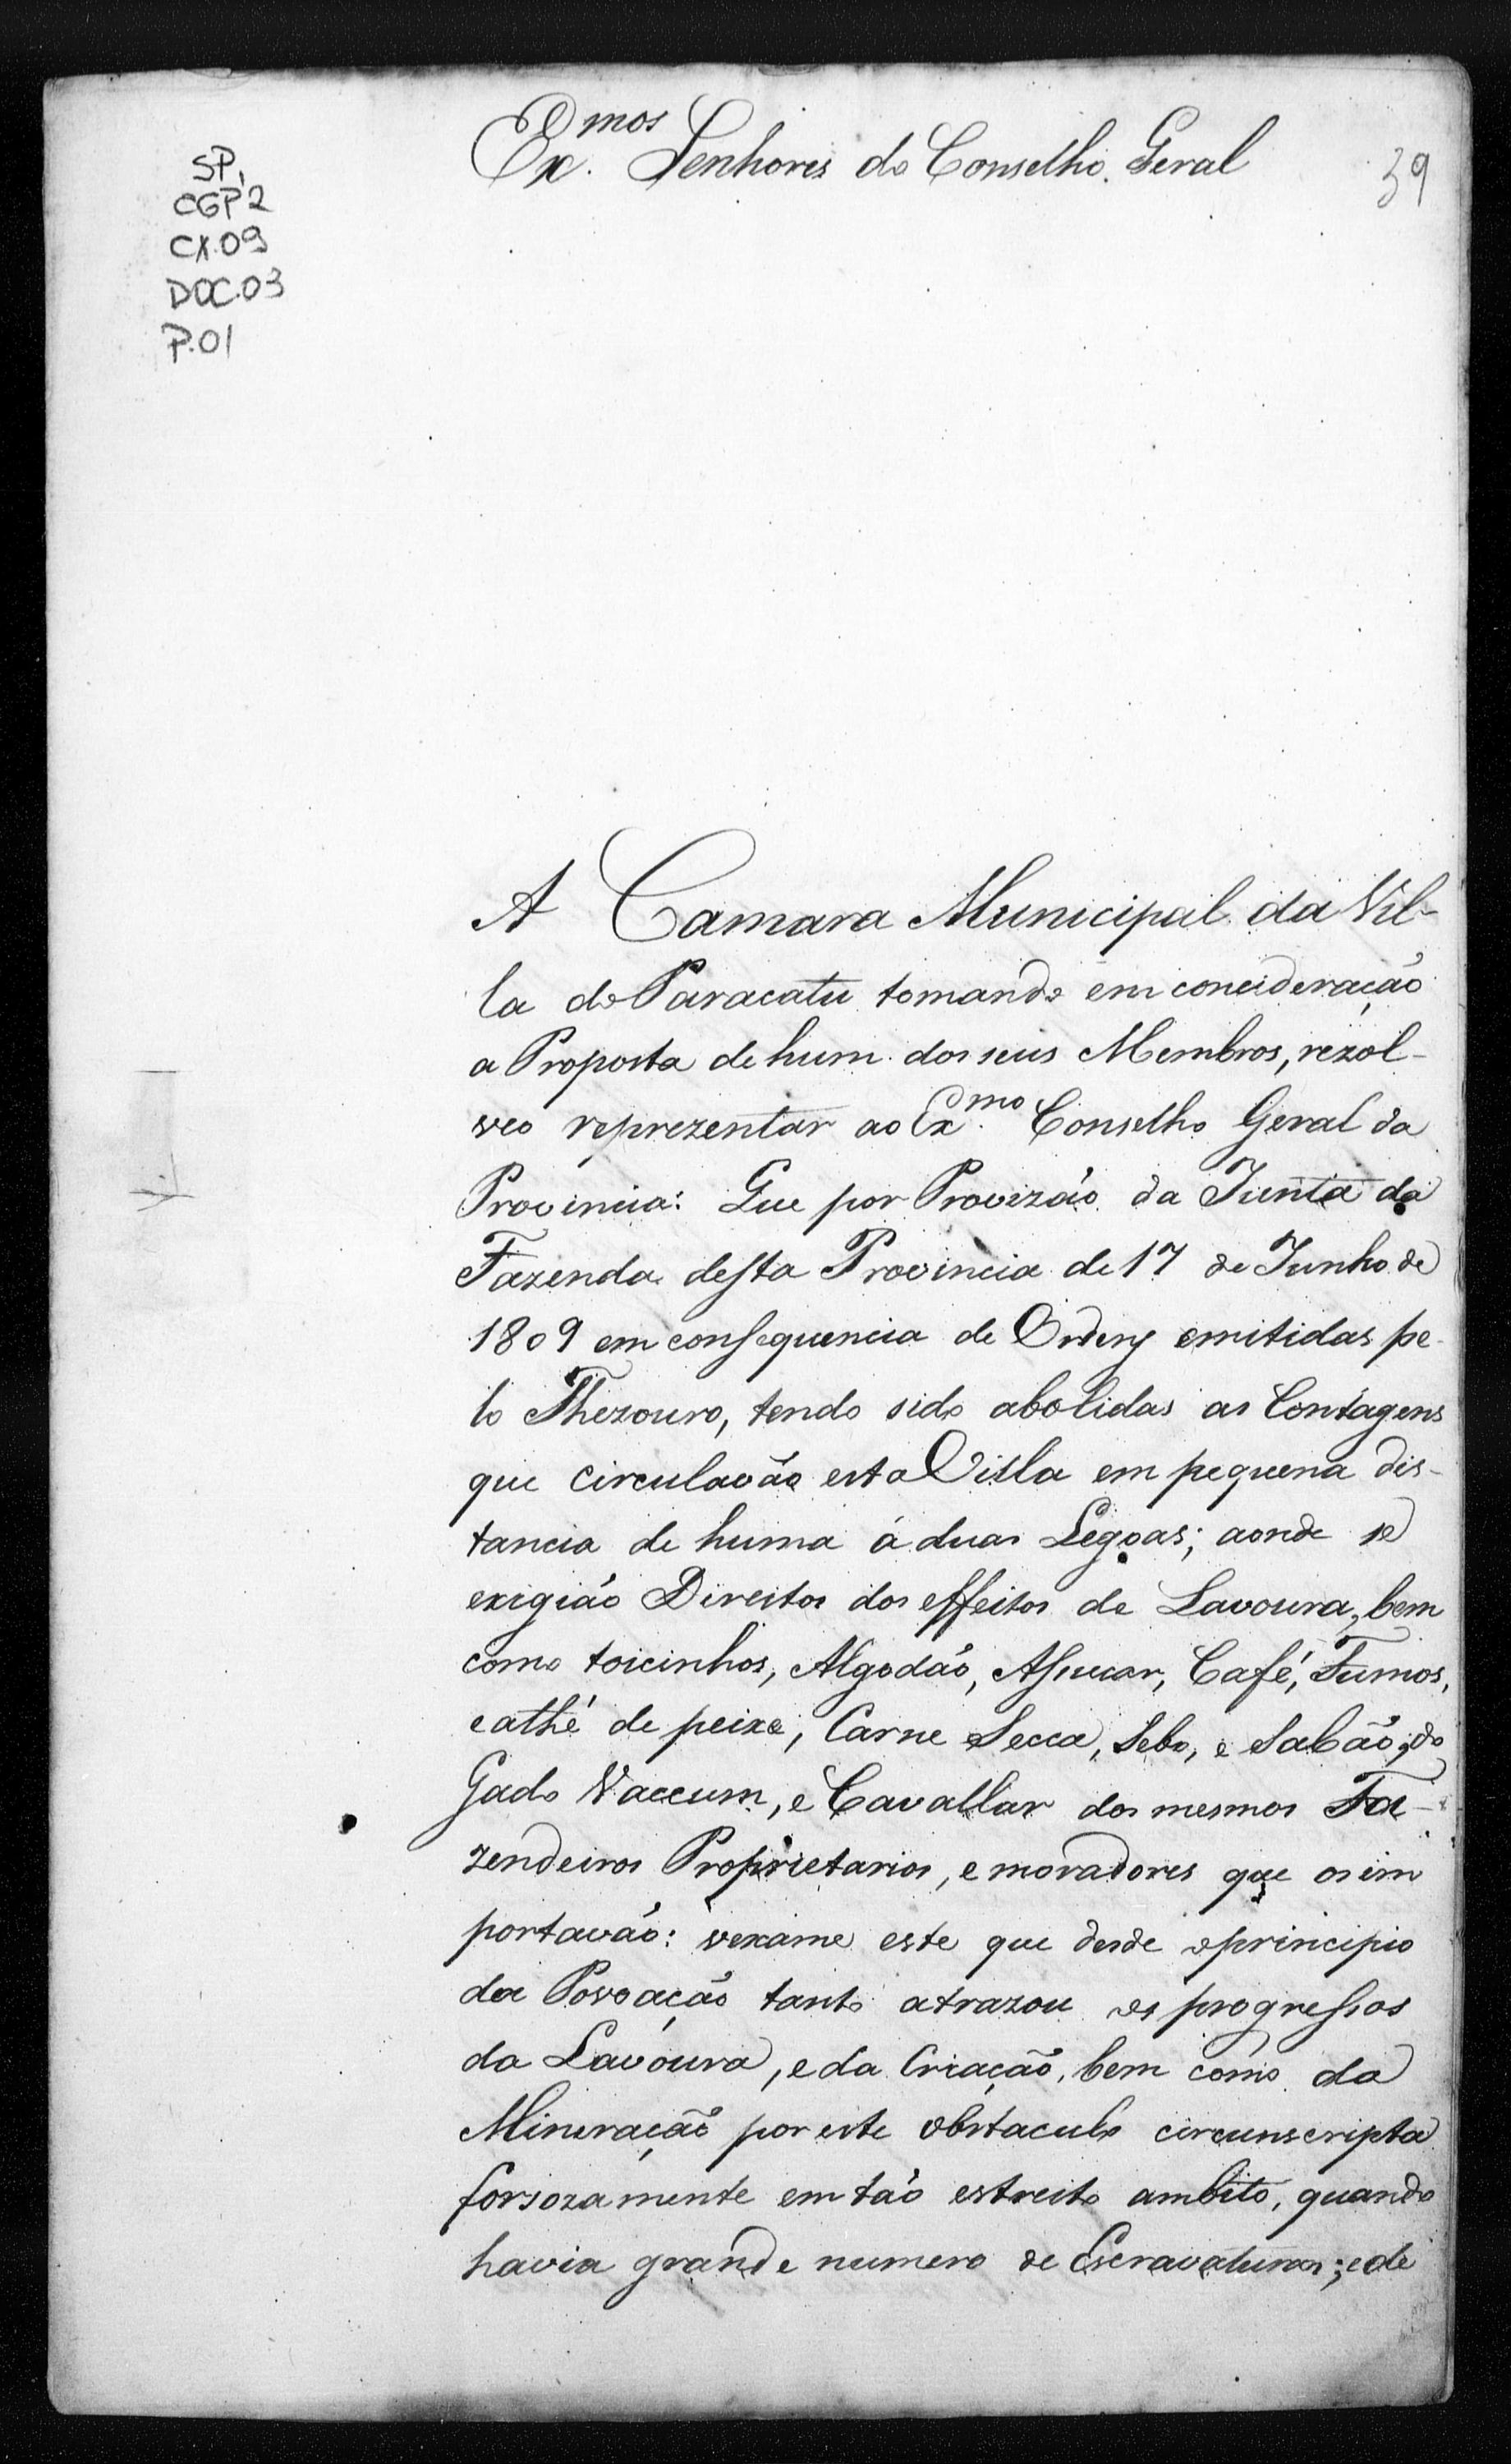 Ex.mos Senhores do Conselho Geral
39
SP,
CGP2
CX.09
DOC.03
P.01
A Camara Municipal da Vil-
la do Paracatu tomando em concideração
a Proposta de hum dos seus Membros, rezol-
veo reprezentar ao Ex.mo Conselho Geral da
Provincia: Que por Provizão da Junta da
Fazenda desta Provincia de 17 de Junho de
1809 em consequencia de Ordens emitidas pe-
lo Thezouro, tendo sido abolidas as Contagens
que circulavão esta Villa em pequena dis-
tancia de huma á duas Legoas; aonde se
exigião Direitos dos effeitos de Lavoura, bem
como toicinhos, Algodão, Assucar, Café, Fumos,
e athé de peixe, Carne Secca, Sebo, e Sabão; do
Gado Vaccum, e Cavallar dos mesmos Fa-
zendeiros Proprietarios, e moradores que os im
portavão: vexame este que desde o principio
da Povoação tanto atrazou os progressos
da Lavoura, e da Criação, bem como da
Mineração por este obstaculo circunscripta
forsozamente em tão estreito ambito, quando
havia grande numero de Escravaturas; e de